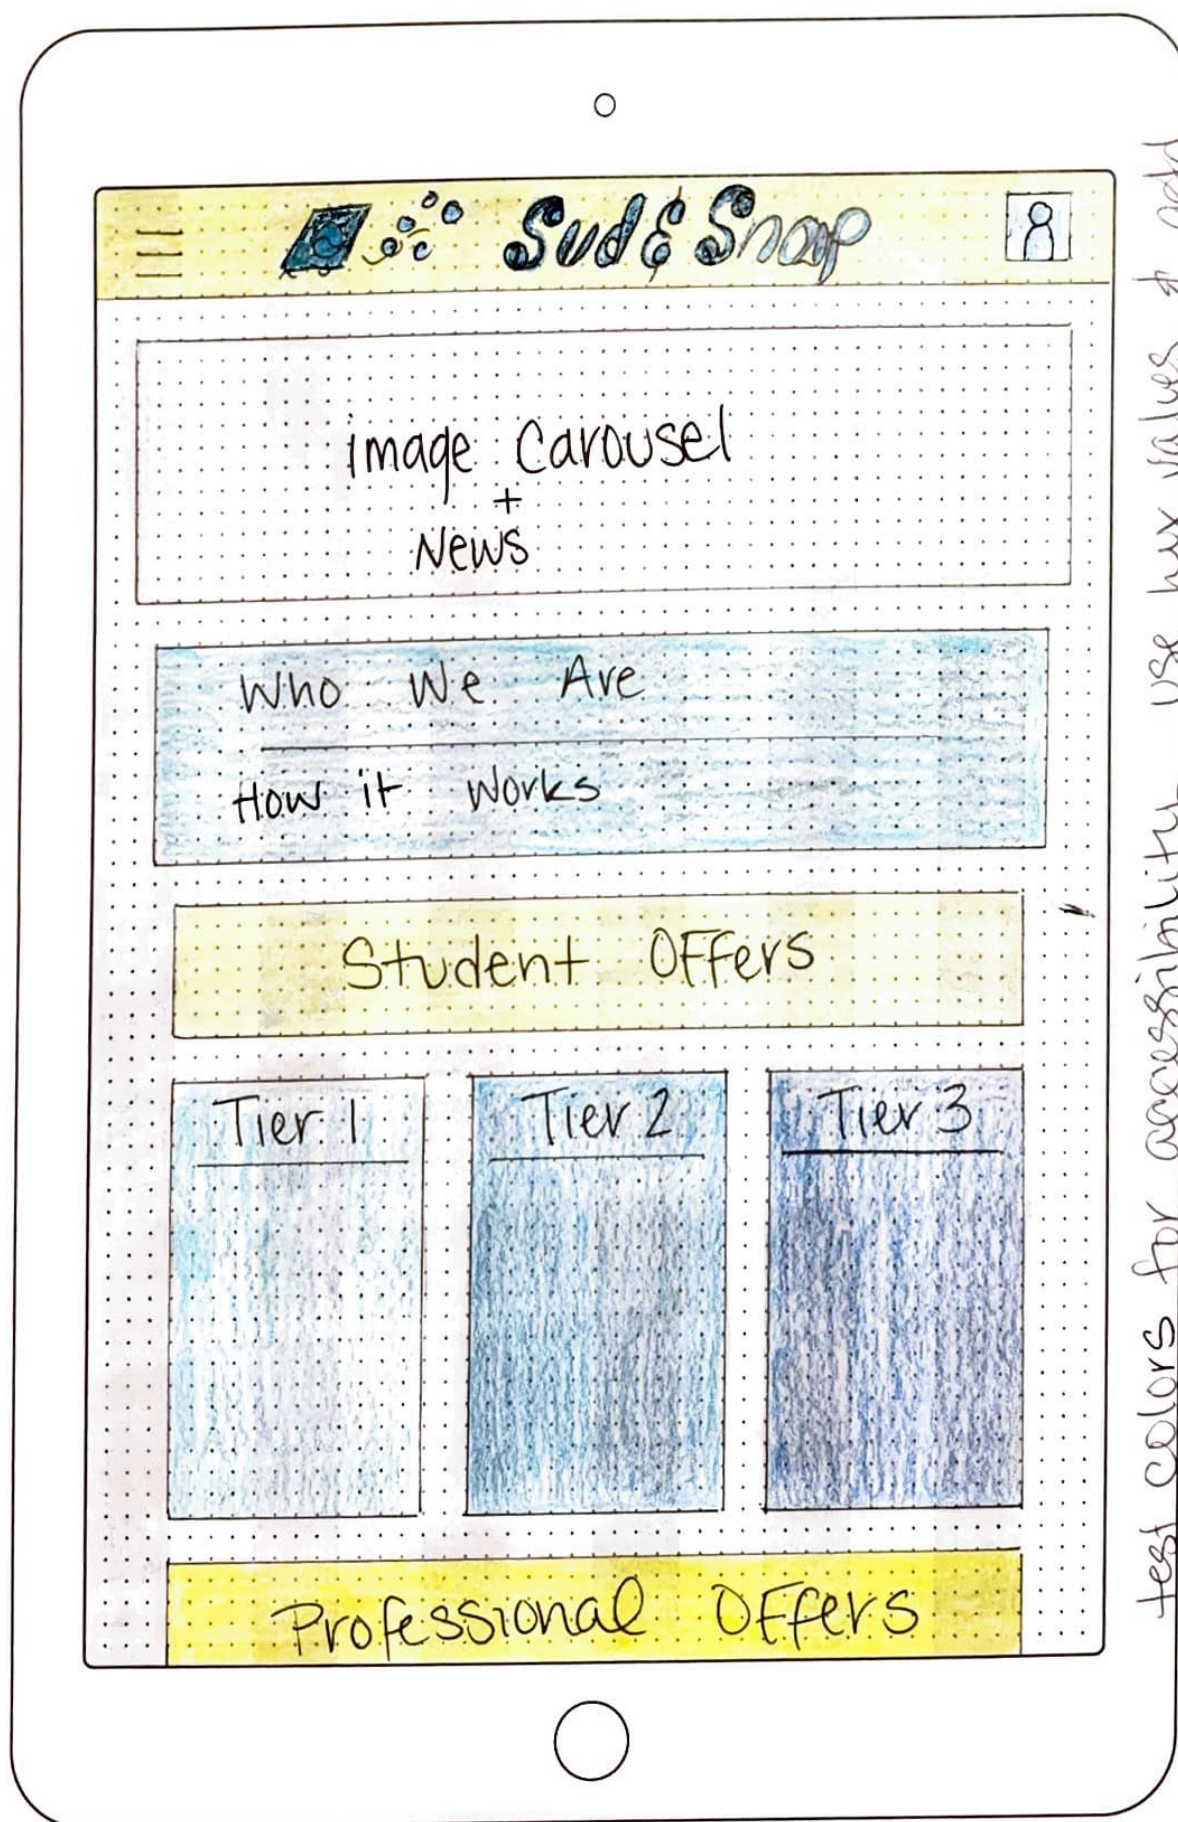 Sud & Snap
image Carousel
+
News
Who We Are
How it Works
Student Offers
Tier 1
Tier 2
Tier 3
Professional Offers
test colors for accessibility use hex values & add